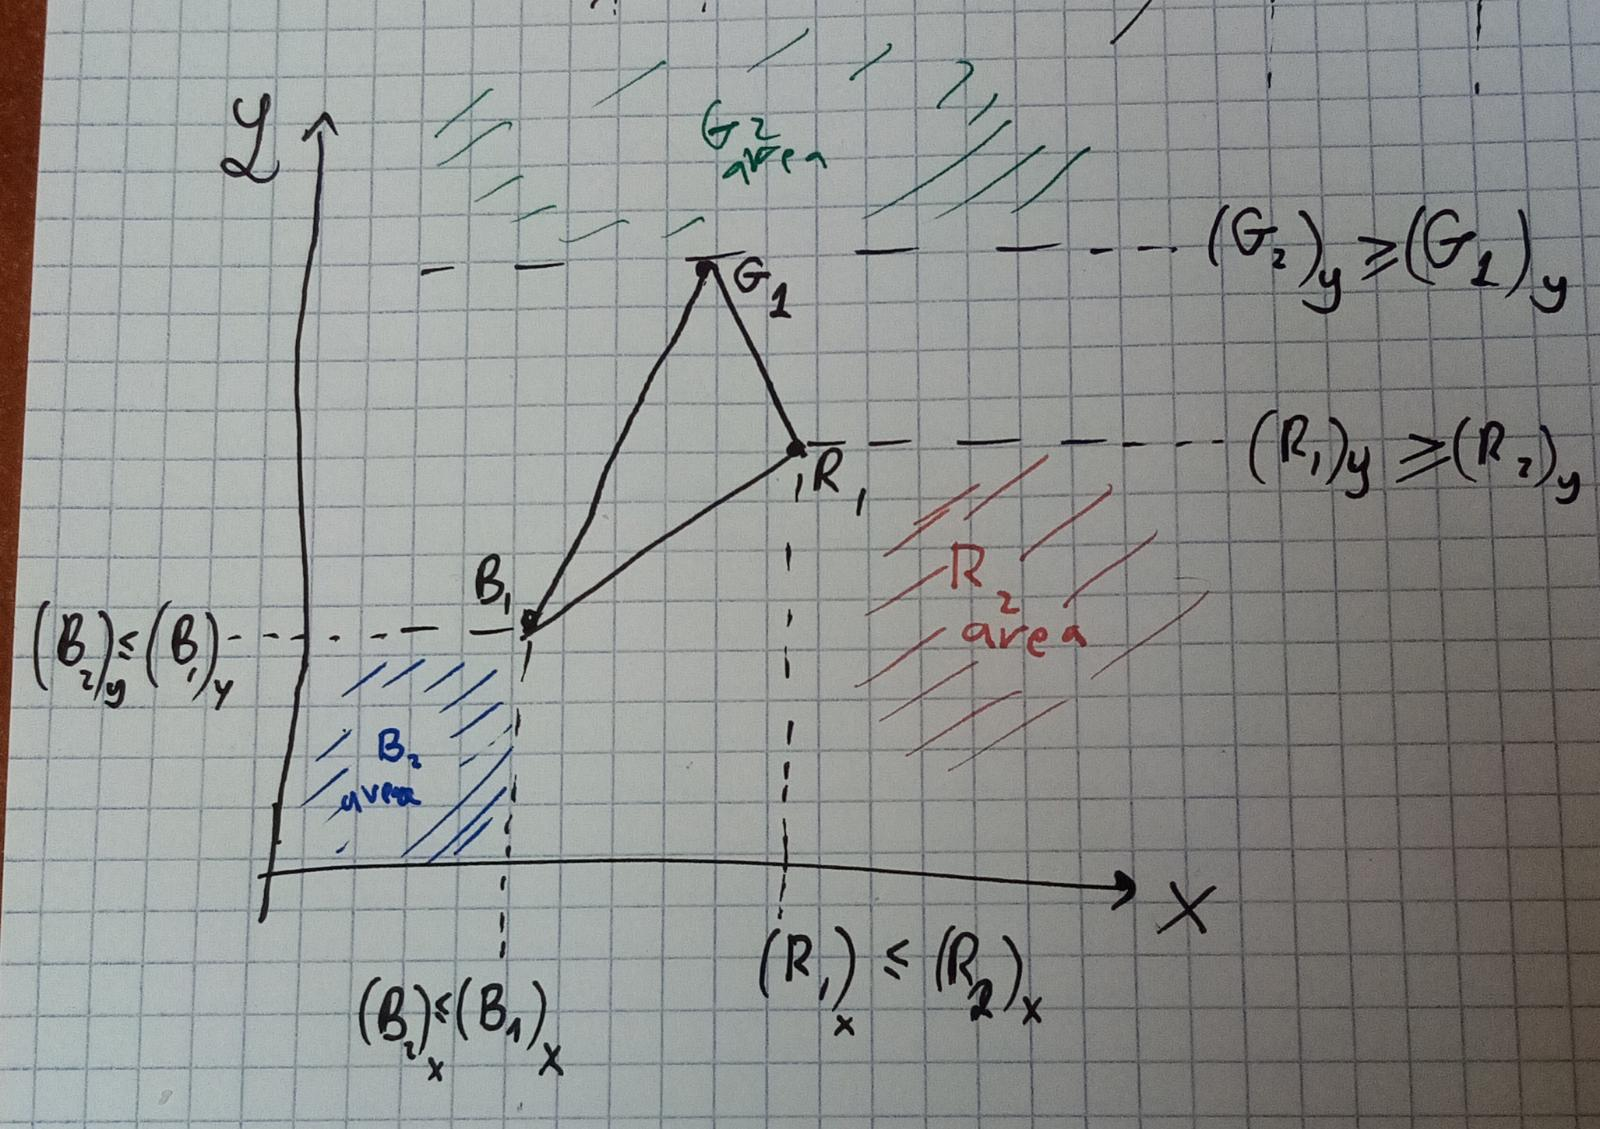 y
G₂
area
(G₂)y ≥ (G₁)y
G₁
(R₁)y ≥ (R₂)y
R₁
R₂
area
B₁
(B₂)y ≤ (B₁)y
B₂
area
x
(R₁)x ≤ (R₂)x
(B₂)x ≤ (B₁)x